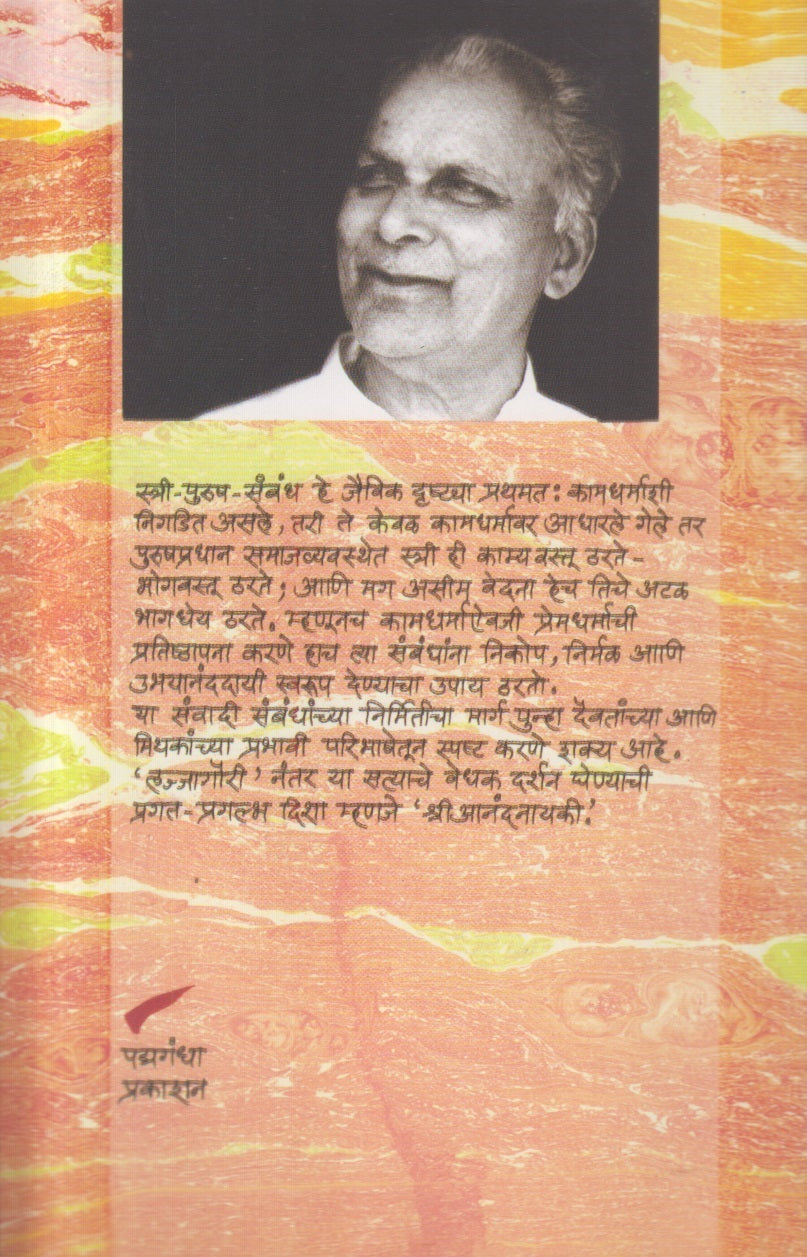 स्त्री-पुरुष-संबंध हे जैविक दृष्ट्या प्रथमतः कामधर्माशी
निगडित असले, तरी ते केवळ कामधर्मावर आधारले गेले तर
पुरुषप्रधान समाजव्यवस्थेत स्त्री ही काम्यवस्तू ठरते -
भोगवस्तू ठरते; आणि मग असीम वेदना हेच तिचे अटळ
भागधेय ठरते. म्हणूनच कामधर्माऐवजी प्रेमधर्माची
प्रतिष्ठापना करणे हाच त्या संबंधांना निकोप, निर्मळ आणि
उभयानंददायी स्वरूप देण्याचा उपाय ठरतो.
या संवादी संबंधांच्या निर्मितीचा मार्ग पुन्हा दैवतांच्या आणि
मिथकांच्या प्रभावी परिभाषेतून स्पष्ट करणे शक्य आहे.
‘लज्जागौरी’ नंतर या सत्याचे वेधक दर्शन घेण्याची
प्रगत-प्रगल्भ दिशा म्हणजे ‘श्रीआनंदनायकी.’
पद्मगंधा
प्रकाशन